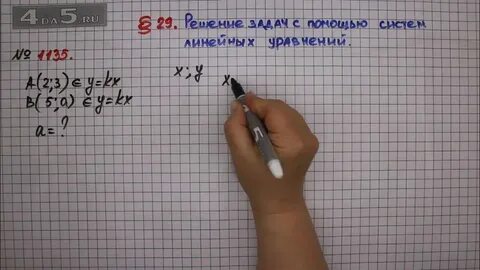 4DA5.RU
§ 29. Решение задач с помощью систем
линейных уравнений.
№ 1135.
A(2;3) ∈ y=kx
B(5;a) ∈ y=kx
a=?
x ; y
x